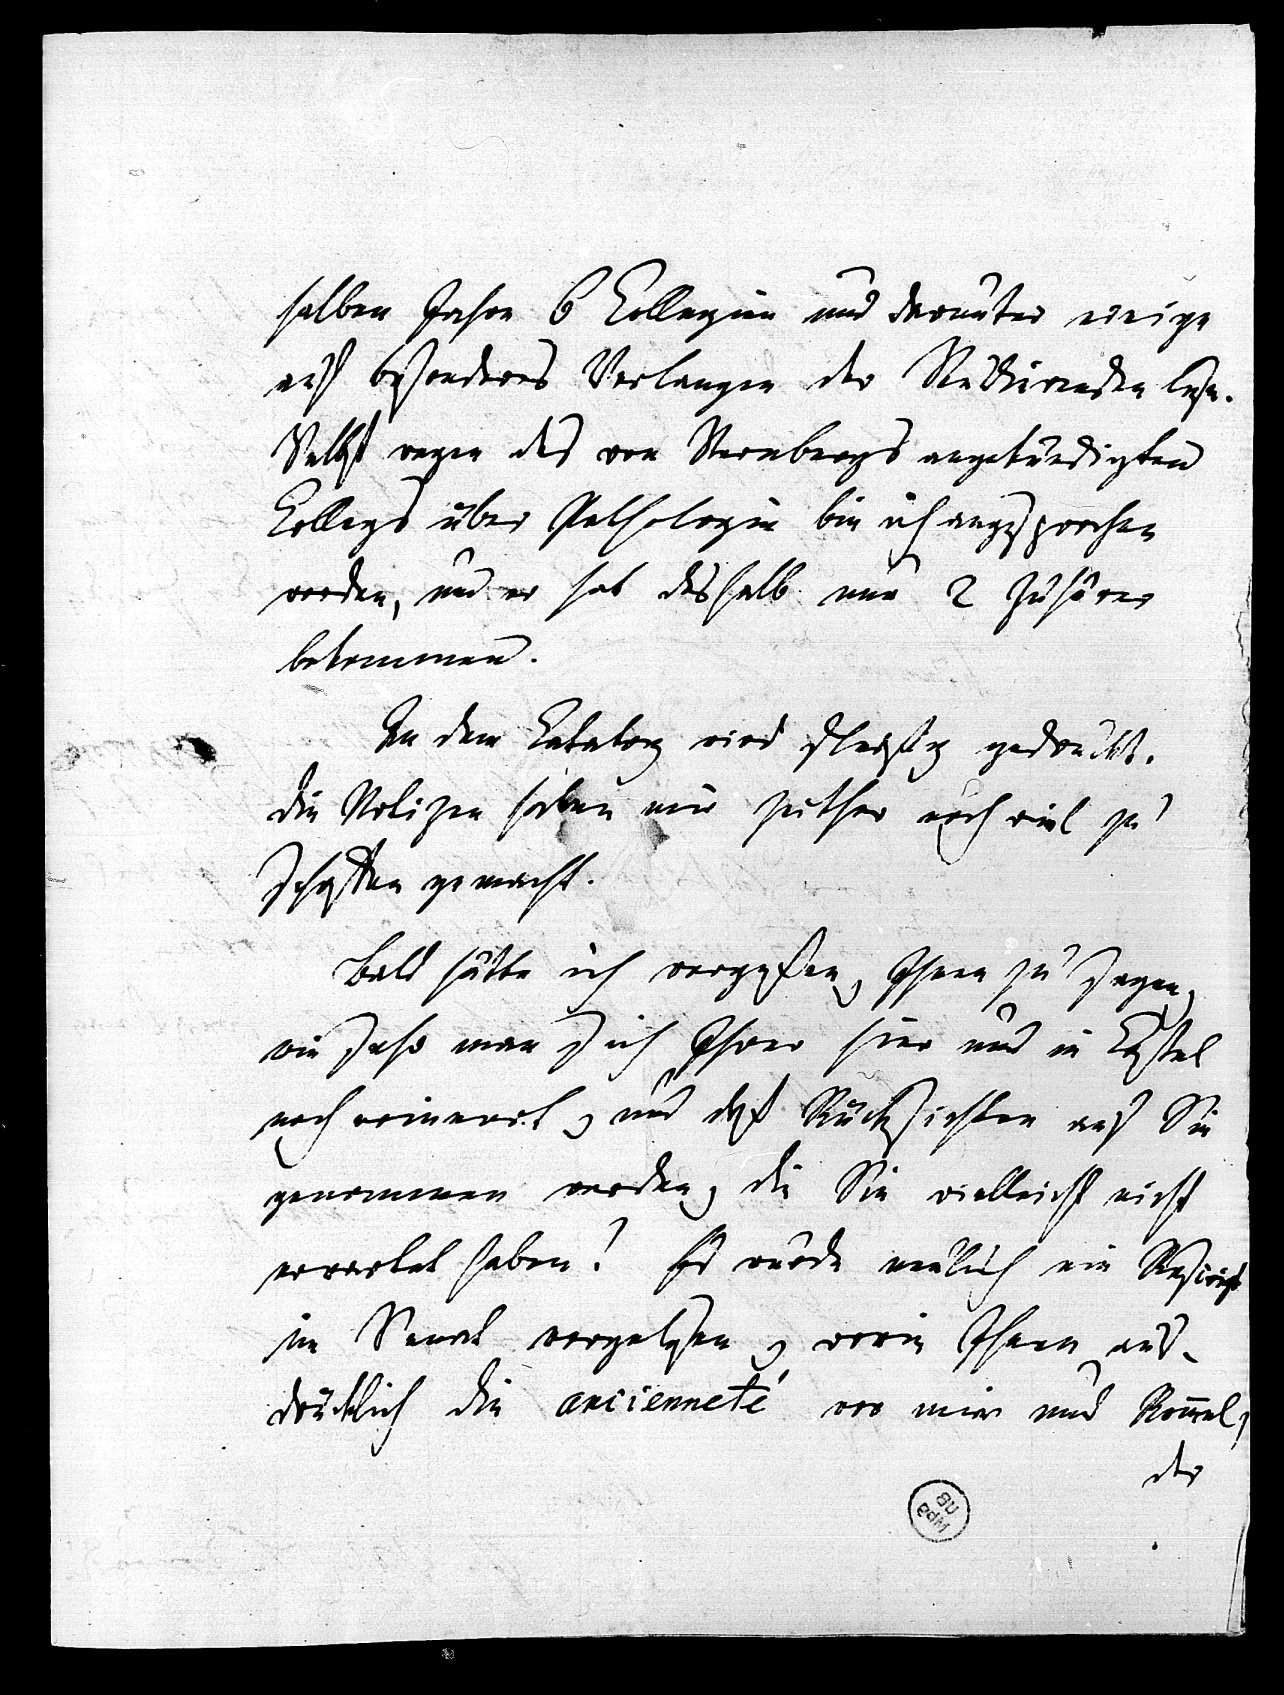 selben Jahre 6 Collegien und darunter einige
auf besonderes Verlangen der Studirenden lese.
Selbst wegen des von Sternbergs angekündigten
Collegs über Pathologie bin ich angesprochen
worden, und er hat deshalb nur 2 Zuhörer
bekommen.
In dem Catalog wird fleißig gedruckt.
Die Notizen haben mir seither noch viel zu
schaffen gemacht.
Bald hätte ich vergeßen, Ihnen zu sagen,
wie sehr man sich Ihrer hier und in Caßel
noch erinnert, und daß Rücksichten auf Sie
genommen werden, die Sie vielleicht nicht
erwartet haben! Es wurde neulich ein Rescript
im Senat vorgelesen, worin Ihnen aus-
drücklich die ancienneté vor mir und Rom̅el,
der
UB
MPB